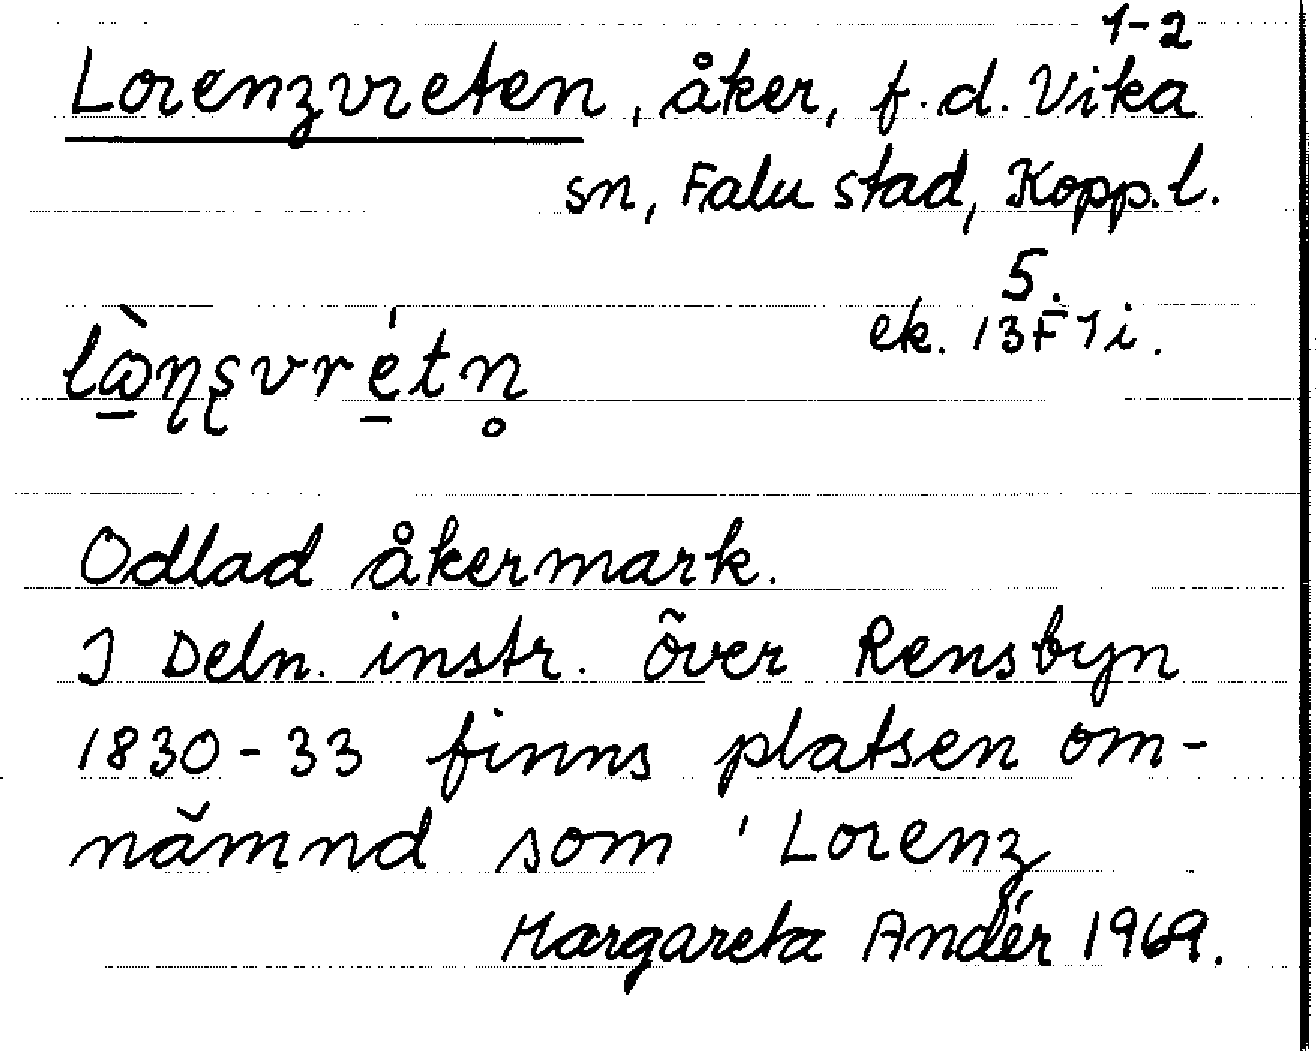 1-2
Lorenzvreten, åker, f.d. Vika
sn, Falu stad, Kopp.l.
5.
ek. 13F1i.
Odlad åkermark.
I Deln. instr. över Rensbyn
1830-33 finns platsen om-
nämnd som 'Lorenz
Margareta Andér 1969.